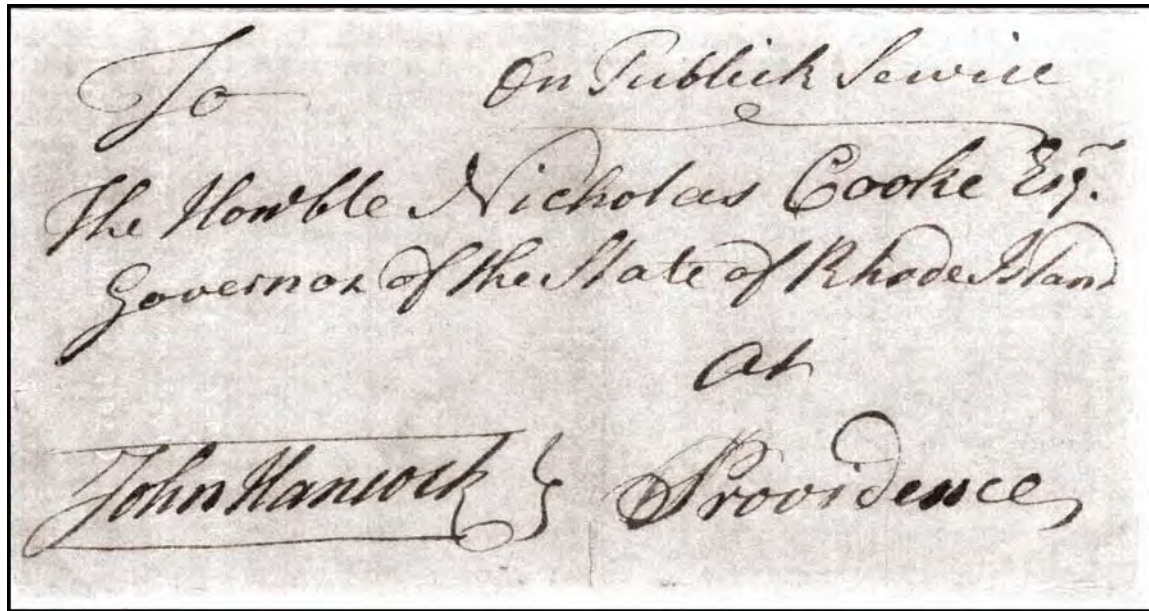 To On Publick Service
The Honble Nicholas Cooke Esq.
Governor of the State of Rhode Island
at
John Hancock Providence